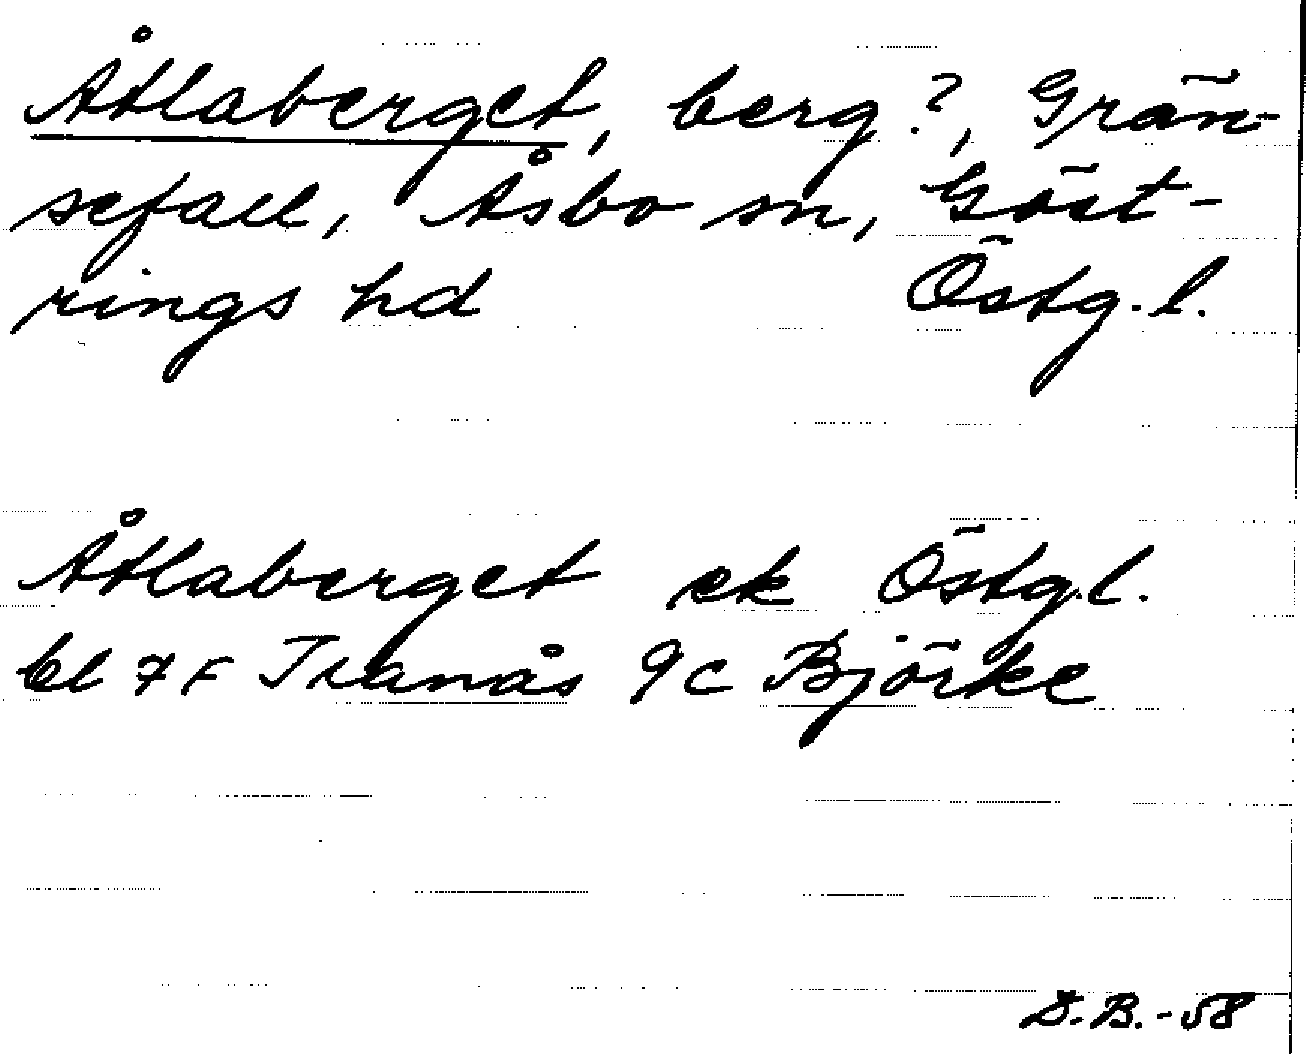 Åtlaberget, berg?, Grän-
sefall, Åsbo sn, Göst-
rings hd Östg.l.
Åtlaberget ek Östg.l.
bl 7F Tranås 9c Björke
D.B.-58